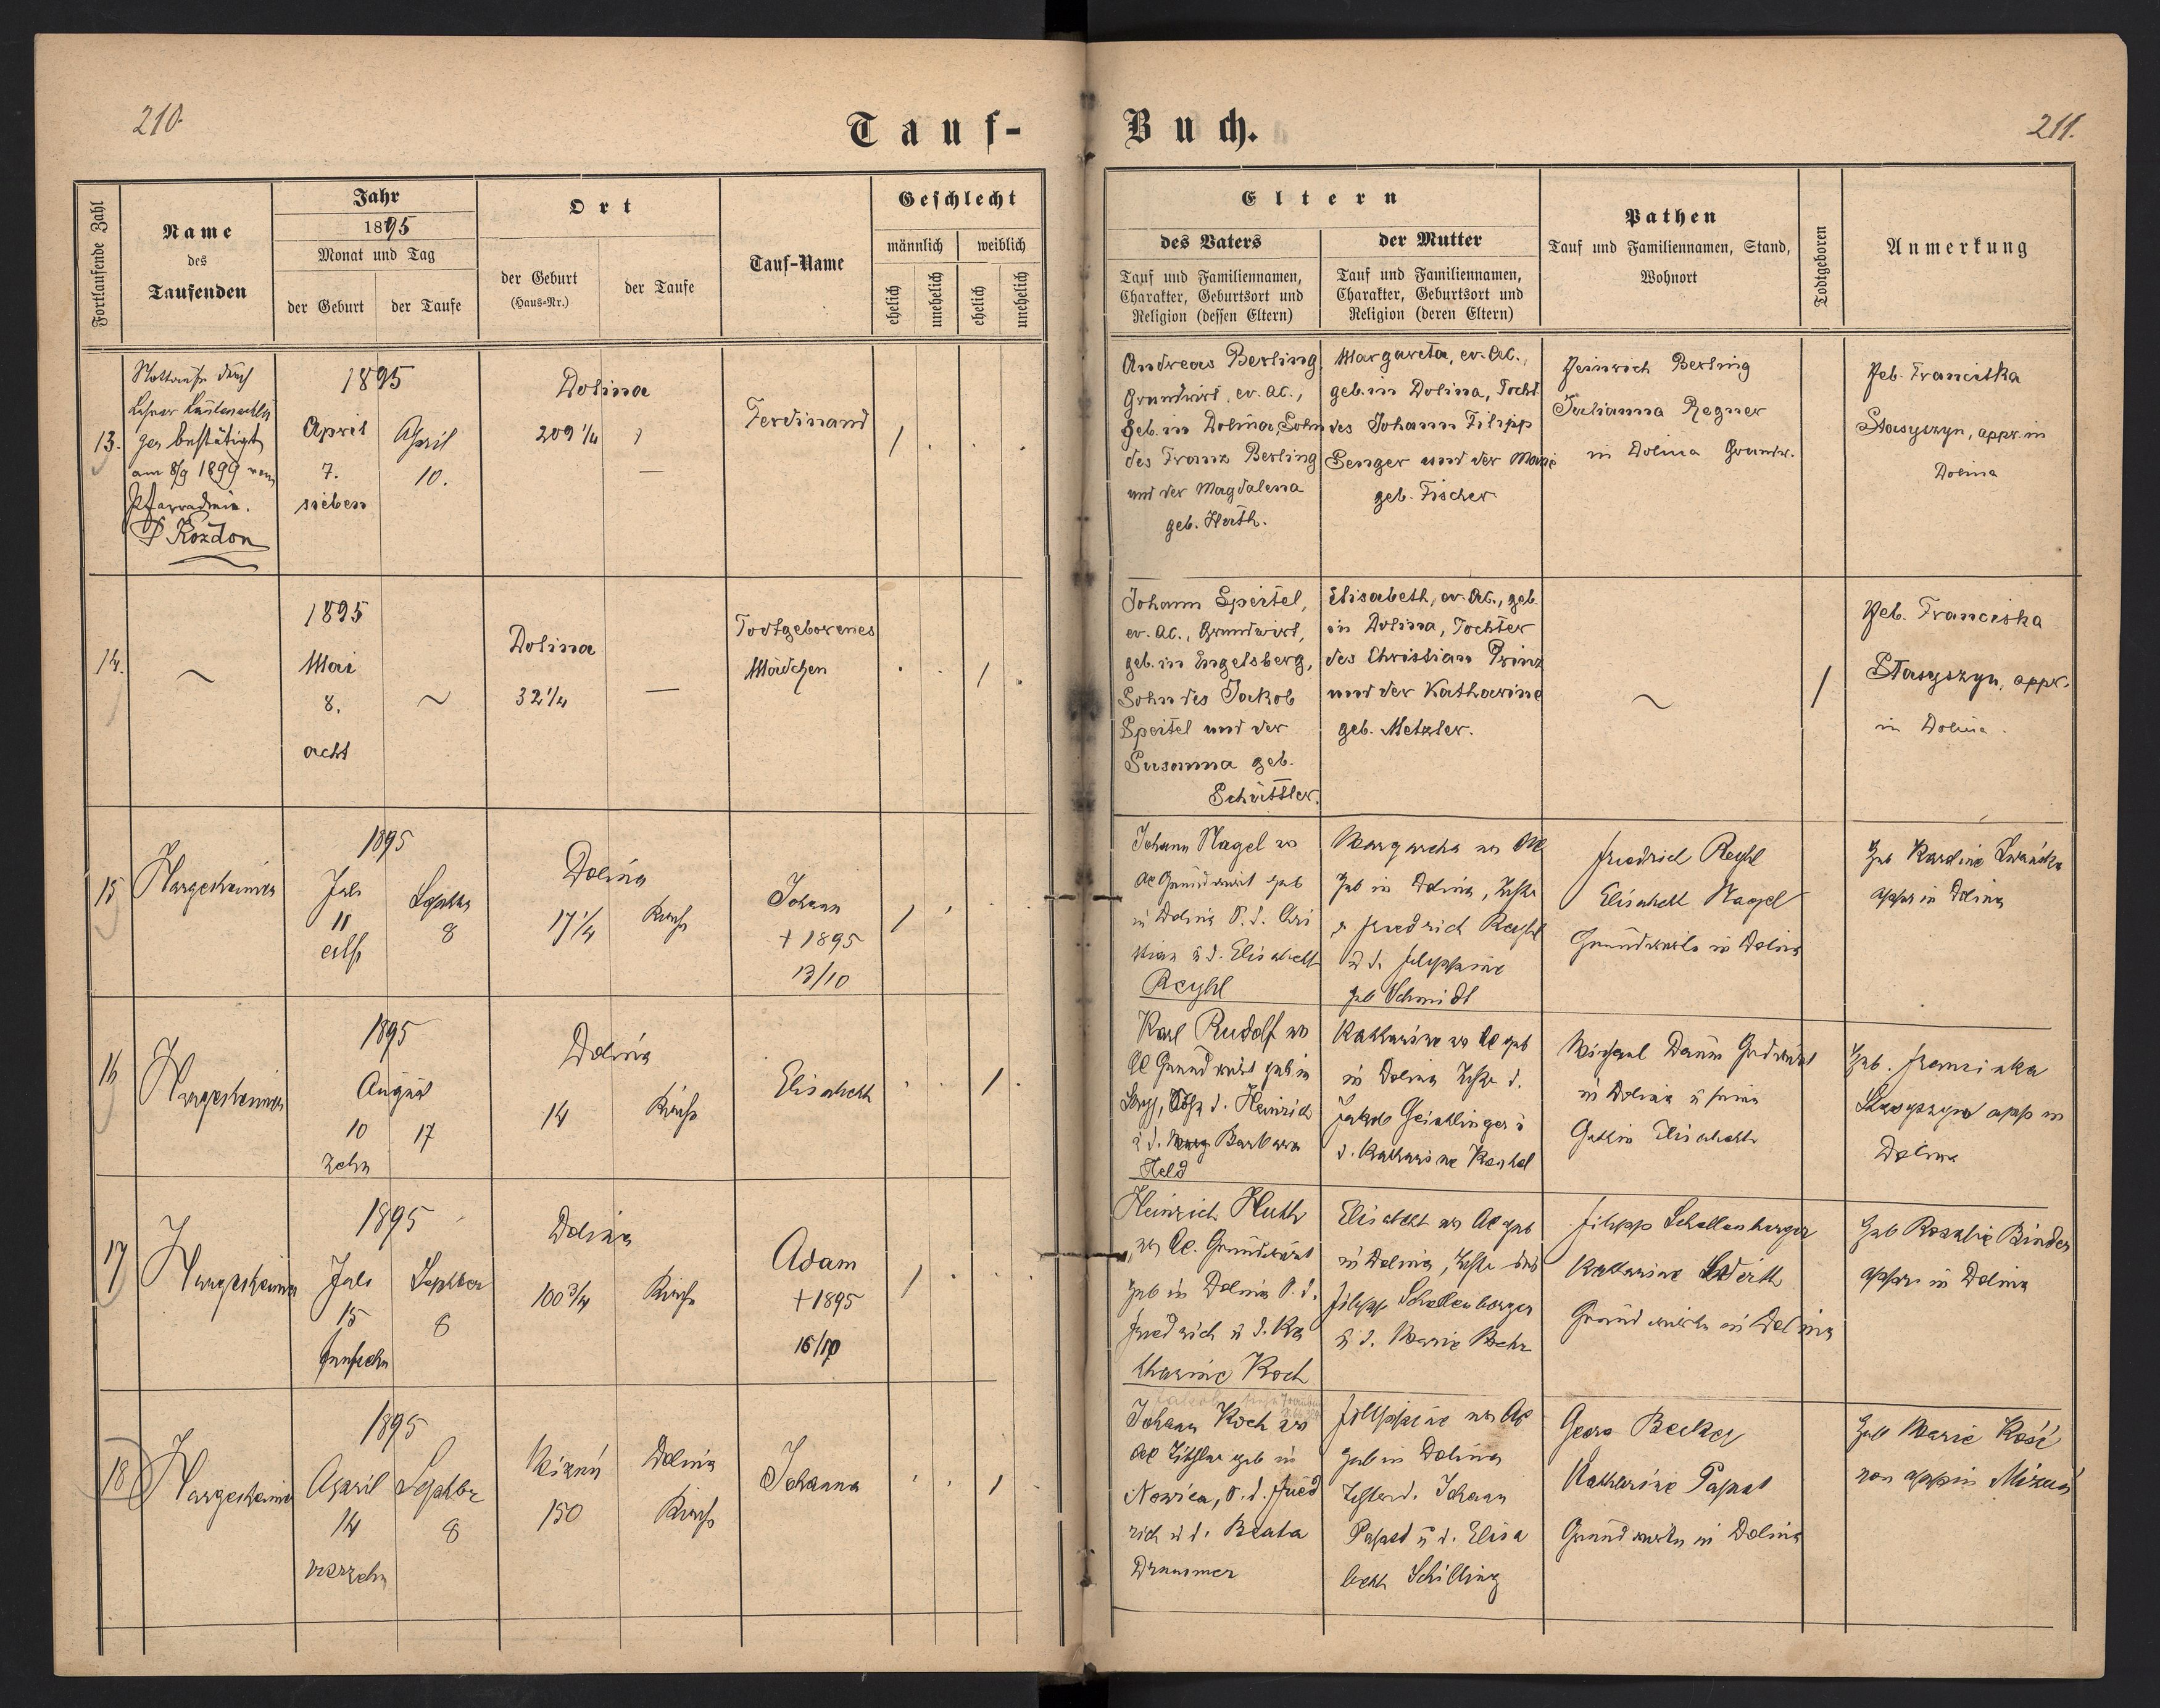 210.
Tauf-
Buch.
211.
Fortlaufende Zahl
Name
des
Taufenden
Jahr
1895
Monat und Tag
der Geburt
der Taufe
Ort
der Geburt
(Haus-Nr.)
der Taufe
Tauf-Name
Geschlecht
männlich
weiblich
ehelich
unehelich
ehelich
unehelich
Eltern
des Vaters
Tauf und Familiennamen,
Charakter, Geburtsort und
Religion (dessen Eltern)
der Mutter
Tauf und Familiennamen,
Charakter, Geburtsort und
Religion (deren Eltern)
Pathen
Tauf und Familiennamen, Stand,
Wohnort
Todtgeboren
Anmerkung
13.
Nottaufe durch
Lehrer
bestätigt
am 8/9 1899 vom
Pfarradmin.
Kozdon
1895
April
7.
sieben
April
10.
Dolina
209 1/4
?
—
Ferdinand
/
Andreas Berling
Grundwirt, ev. AC.,
geb. in Dolina, Sohn
des Franz Berling
und der Magdalena
geb. Huth.
Margareta, ev. AC.,
geb. in Dolina, Tocht.
des Johann Filipp
Senger und der Marie
geb. Fischer
Heinrich Berling
Julianna Regner
in Dolina Grundw.
Heb. Franciska
Stasyszyn, appr. in
Dolina
14.
~
1895
Mai
8.
acht
~
Dolina
32 1/4
—
Todtgeborenes
Mädchen
/
Johann Speitel,
ev. AC., Grundwirt,
geb. in Engelsberg,
Sohn des Jakob
Speitel und der
Susanna geb.
Schüttler.
Elisabeth, ev. AC., geb.
in Dolina, Tochter
des Christian Prinz
und der Katharine
geb. Metzler.
~
/
Heb. Franciska
Stasyszyn, appr.
in Dolina.
15
Hargesheimer
1895
Juli
11
eilf
Septber
8
Dolina
17 1/4
Kirche
Johann
+ 1895
13/10
/
Johann Nagel ev
AC Grundwirt geb
in Dolina S. d. Chri
stian u d. Elisabeth
Reyhl
Margaretha ev AC
geb in Dolina, Tochter
d Friedrich Reyhl
u d. Filippine
geb Schmidt
Friedrich Reyhl
Elisabeth Nagel
Grundwirte in Dolina
Heb Karoline
appr in Dolina
16
Hargesheimer
1895
August
10
zehn
17
Dolina
14
Kirche
Elisabeth
/
Karl Rudolf ev
AC Grundwirt geb in
Sohn d. Heinrich
u d. Barbara
Held
Katharine ev AC geb
in Dolina Tochter d.
Jakob Geistlinger u
d. Katharine
Michael Daum Grdwirt
in Dolina u seine
Gattin Elisabeth
Heb. Franciska
Stasyszyn app in
Dolina
17
Hargesheimer
1895
Juli
15
fünfzehn
Septber
8
Dolina
100 3/4
Kirche
Adam
+ 1895
16/10
/
Heinrich Huth
ev AC. Grundwirt
geb in Dolina S. d.
Friedrich u d. Ka
tharine Koch
Elisabeth ev AC geb
in Dolina, Tochter des
Filipp Schallenberger
u d. Marie
Filipp Schallenberger
Katharine
Grundwirte in Dolina
Heb Rosalie Binder
appr in Dolina
18
Hargesheimer
1895
April
14
vierzehn
Septber
8
Mizuń
150
Dolina
Kirche
Johanna
/
Johann Koch ev
AC Tischler geb in
Nowica, S. d. Fried
rich u d. Beata
Drummer
Filippine ev AC
geb in Dolina
Tochter d. Johann
Papst u d. Elisa
beth Schilling
Georg Becker
Katharine Papst
Grundwirte in Dolina
Heb Marie
non app in Mizuń